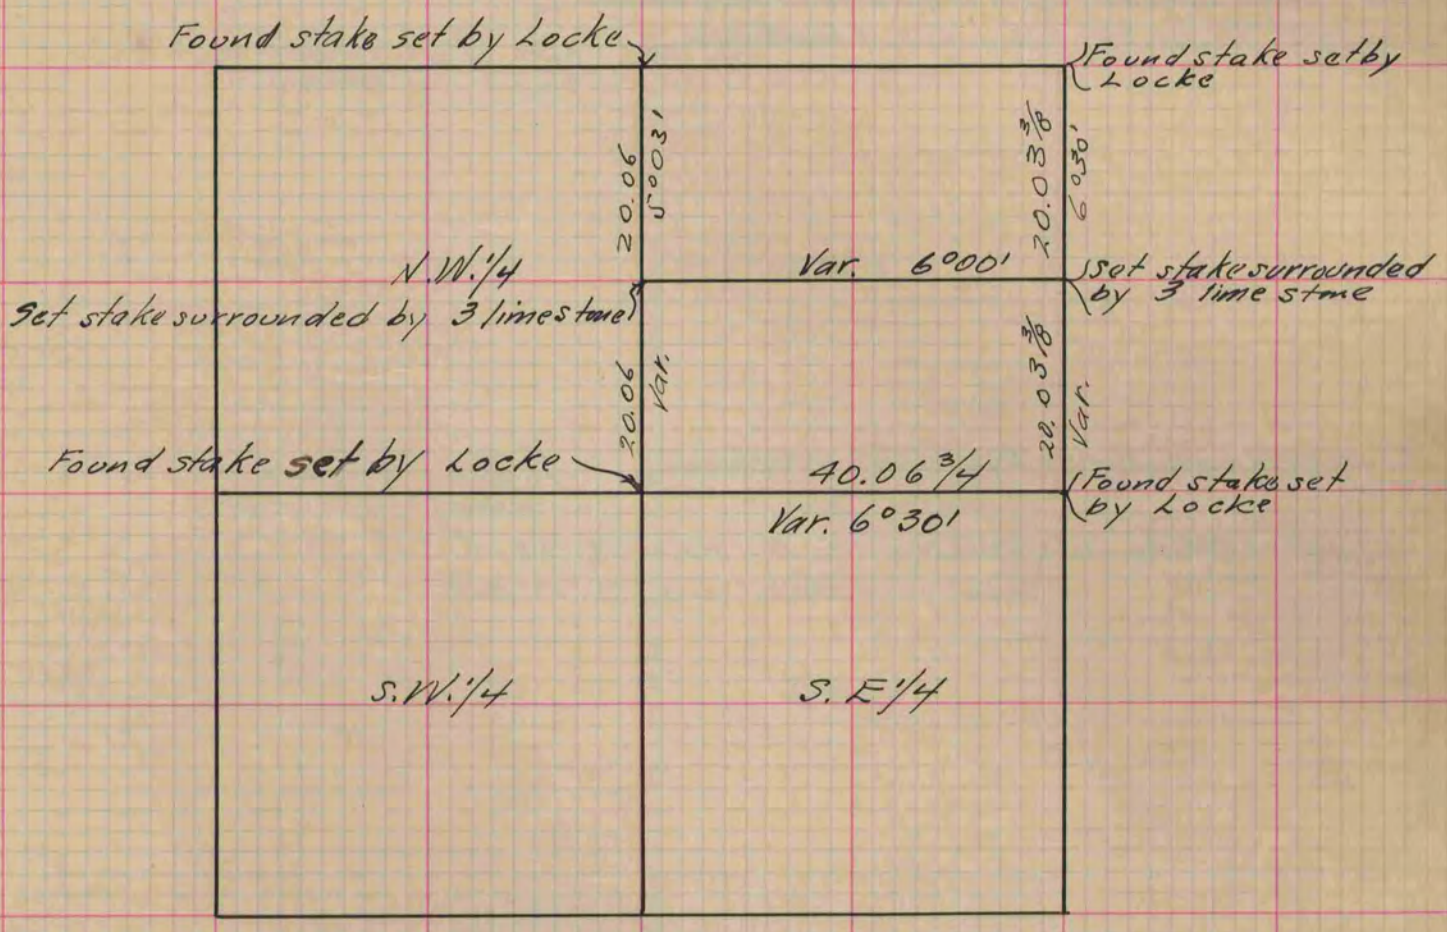 Found stake set by Locke
Found stake set by
Locke
20.06
5°03'
20.03 3/8
6°30'
N.W. 1/4
Var. 6°00'
set stake surrounded
by 3 lime stone
Set stake surrounded by 3 limestone
20.06
Var.
20.03 3/8
Var.
Found stake set by Locke
40.06 3/4
Found stake set
by Locke
Var. 6°30'
S.W. 1/4
S. E 1/4